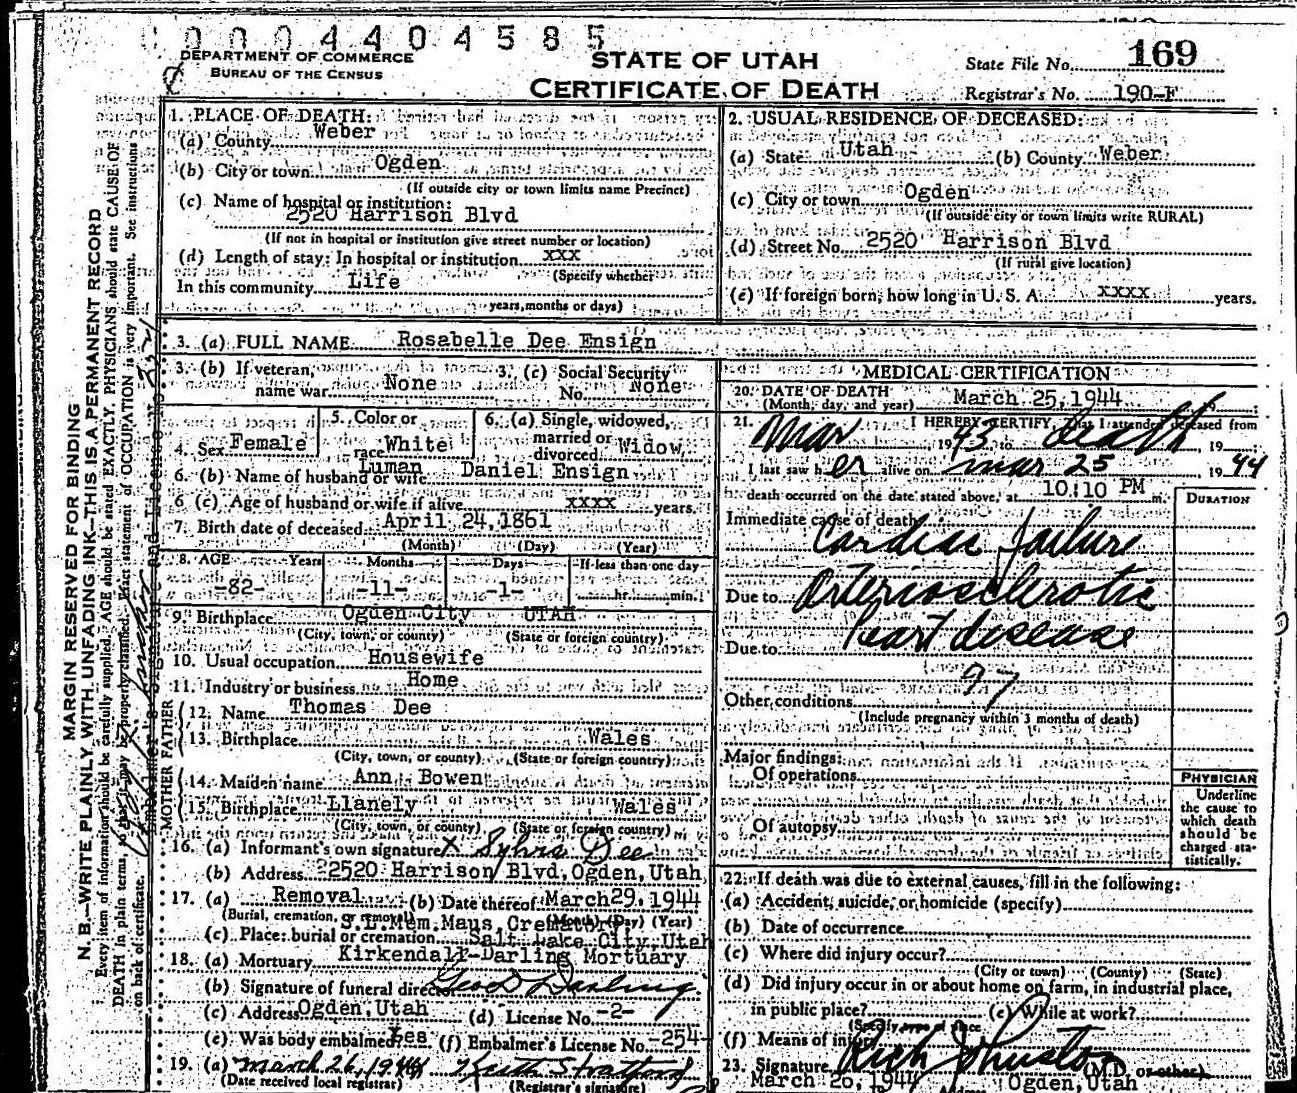 0 0 0 4 4 0 4 5 8 5
DEPARTMENT OF COMMERCE
BUREAU OF THE CENSUS
STATE OF UTAH
CERTIFICATE OF DEATH
State File No. 169
Registrar's No. 190-F
MARGIN RESERVED FOR BINDING
N. B.—WRITE PLAINLY WITH UNFADING INK—THIS IS A PERMANENT RECORD
Every item of information should be carefully supplied. AGE should be stated EXACTLY. PHYSICIANS should state CAUSE OF
DEATH in plain terms, so that it may be properly classified. Exact statement of OCCUPATION is very important. See instructions
on back of certificate.
1. PLACE OF DEATH:
(a) County Weber
(b) City or town Ogden
(If outside city or town limits name Precinct)
(c) Name of hospital or institution:
2520 Harrison Blvd
(If not in hospital or institution give street number or location)
(d) Length of stay: In hospital or institution xxx
(Specify whether
In this community Life
years, months or days)
2. USUAL RESIDENCE OF DECEASED:
(a) State Utah (b) County Weber
(c) City or town Ogden
(If outside city or town limits write RURAL)
(d) Street No. 2520 Harrison Blvd
(If rural give location)
(e) If foreign born, how long in U. S. A. xxxx years.
3. (a) FULL NAME Rosabelle Dee Ensign
3. (b) If veteran, name war None
3. (c) Social Security No. None
4. Sex Female
5. Color or race White
6. (a) Single, widowed, married or divorced Widow
6. (b) Name of husband or wife Luman Daniel Ensign
6. (c) Age of husband or wife if alive xxxx years.
7. Birth date of deceased April 24, 1861
(Month) (Day) (Year)
8. AGE Years Months Days If less than one day
-82- -11- -1- hr. min.
9. Birthplace Ogden City UTAH
(City, town, or county) (State or foreign country)
10. Usual occupation Housewife
11. Industry or business Home
FATHER
12. Name Thomas Dee
13. Birthplace Wales
(City, town, or county) (State or foreign country)
MOTHER
14. Maiden name Ann Bowen
15. Birthplace Llanely Wales
(City, town, or county) (State or foreign country)
16. (a) Informant's own signature x Sylvia Dee
(b) Address 2520 Harrison Blvd, Ogden, Utah
17. (a) Removal (b) Date thereof March 29, 1944
(Burial, cremation, or removal) (Month) (Day) (Year)
S.L. Mem. Maus, Crematory
(c) Place: burial or cremation Salt Lake City, Utah
18. (a) Mortuary Kirkendall-Darling Mortuary
(b) Signature of funeral director Geo D Darling
(c) Address Ogden, Utah (d) License No. -2-
(e) Was body embalmed (f) Embalmer's License No. -254-
19. (a) March 26, 1944 Keith Stratford
(Date received local registrar) (Registrar's signature)
MEDICAL CERTIFICATION
20. DATE OF DEATH March 25, 1944
(Month, day, and year)
21. I HEREBY CERTIFY, That I attended deceased from
Mar 1943 to death, 19
I last saw her alive on Mar 25 1944
death occurred on the date stated above, at 10:10 PM m.
DURATION
Immediate cause of death
Cardiac failure
Due to Arteriosclerotic
heart disease
Due to
97
Other conditions
(Include pregnancy within 3 months of death)
Major findings:
Of operations
Of autopsy
PHYSICIAN
Underline
the cause to
which death
should be
charged sta-
tistically.
22. If death was due to external causes, fill in the following:
(a) Accident, suicide, or homicide (specify)
(b) Date of occurrence
(c) Where did injury occur?
(City or town) (County) (State)
(d) Did injury occur in or about home on farm, in industrial place,
in public place? (e) While at work?
(Specify type of place
(f) Means of injury
23. Signature Rich Johnston (M.D. or other)
March 26, 1944 Ogden, Utah